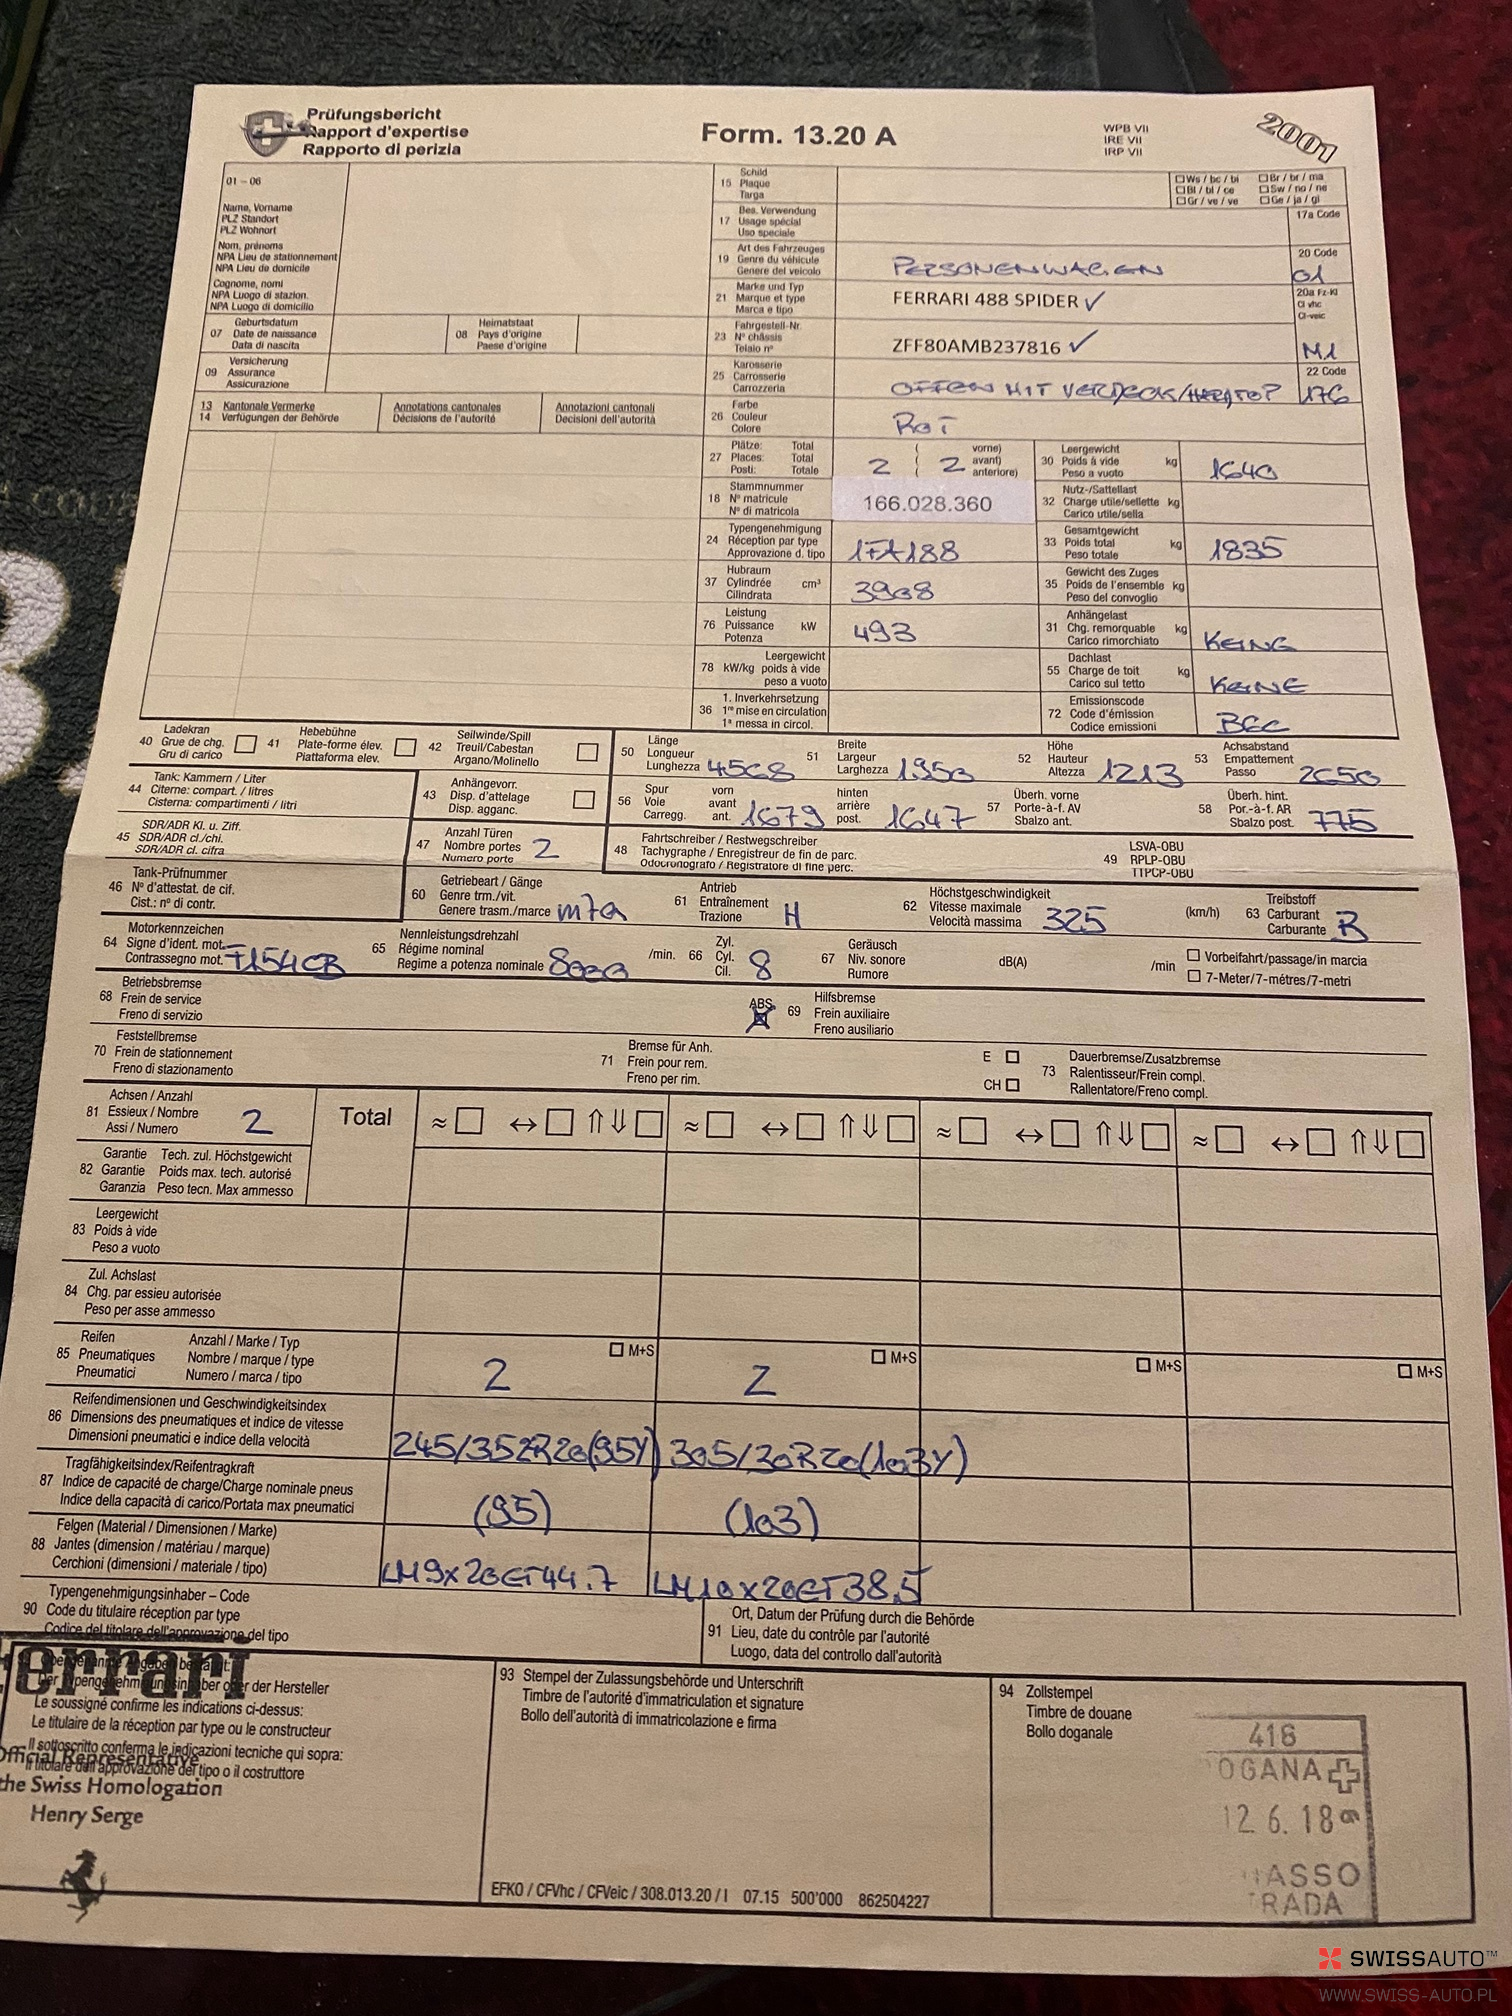 Prüfungsbericht
Rapport d'expertise
Rapporto di perizia
Form. 13.20 A
WPB VII
IRE VII
IRP VII
2001
01 – 06
Name, Vorname
PLZ Standort
PLZ Wohnort
Nom, prénoms
NPA Lieu de stationnement
NPA Lieu de domicile
Cognome, nomi
NPA Luogo di stazion.
NPA Luogo di domicilio
07 Geburtsdatum
Date de naissance
Data di nascita
08 Heimatstaat
Pays d'origine
Paese d'origine
09 Versicherung
Assurance
Assicurazione
13 Kantonale Vermerke
14 Verfügungen der Behörde
Annotations cantonales
Décisions de l'autorité
Annotazioni cantonali
Decisioni dell'autorità
15 Schild
Plaque
Targa
Ws / bc / bi
Bl / bl / ce
Gr / ve / ve
Br / br / ma
Sw / no / ne
Ge / ja / gi
17 Bes. Verwendung
Usage spécial
Uso speciale
17a Code
19 Art des Fahrzeuges
Genre du véhicule
Genere del veicolo
PERSONENWAGEN
20 Code
01
21 Marke und Typ
Marque et type
Marca e tipo
FERRARI 488 SPIDER ✓
20a Fz-Kl
Cl vhc
Cl-veic
M1
23 Fahrgestell-Nr.
N° châssis
Telaio n°
ZFF80AMB237816 ✓
25 Karosserie
Carrosserie
Carrozzeria
OFFEN MIT VERDECK/HARDTOP
22 Code
176
26 Farbe
Couleur
Colore
ROT
27 Plätze: Total
Places: Total
Posti: Totale
2 ( 2 vorne)
( avant)
( anteriore)
30 Leergewicht
Poids à vide kg
Peso a vuoto
1640
18 Stammnummer
N° matricule
N° di matricola
166.028.360
32 Nutz-/Sattellast
Charge utile/sellette kg
Carico utile/sella
24 Typengenehmigung
Réception par type
Approvazione d. tipo
1FA188
33 Gesamtgewicht
Poids total kg
Peso totale
1835
37 Hubraum
Cylindrée cm³
Cilindrata
3908
35 Gewicht des Zuges
Poids de l'ensemble kg
Peso del convoglio
76 Leistung
Puissance kW
Potenza
493
31 Anhängelast
Chg. remorquable kg
Carico rimorchiato
KEINE
78 kW/kg Leergewicht
poids à vide
peso a vuoto
55 Dachlast
Charge de toit kg
Carico sul tetto
KEINE
36 1. Inverkehrsetzung
1re mise en circulation
1ª messa in circol.
72 Emissionscode
Code d'émission
Codice emissioni
B6c
40 Ladekran
Grue de chg.
Gru di carico
41 Hebebühne
Plate-forme élev.
Piattaforma elev.
42 Seilwinde/Spill
Treuil/Cabestan
Argano/Molinello
50 Länge
Longueur
Lunghezza 4568
51 Breite
Largeur
Larghezza 1950
52 Höhe
Hauteur
Altezza 1213
53 Achsabstand
Empattement
Passo 2650
44 Tank: Kammern / Liter
Citerne: compart. / litres
Cisterna: compartimenti / litri
43 Anhängevorr.
Disp. d'attelage
Disp. agganc.
56 Spur vorn
Voie avant
Carregg. ant. 1679
hinten
arrière
post. 1647
57 Überh. vorne
Porte-à-f. AV
Sbalzo ant.
58 Überh. hint.
Por.-à-f. AR
Sbalzo post. 775
45 SDR/ADR Kl. u. Ziff.
SDR/ADR cl./chi.
SDR/ADR cl. cifra
47 Anzahl Türen
Nombre portes
Numero porte
2
48 Fahrtschreiber / Restwegschreiber
Tachygraphe / Enregistreur de fin de parc.
Odocronografo / Registratore di fine perc.
49 LSVA-OBU
RPLP-OBU
TTPCP-OBU
46 Tank-Prüfnummer
N° d'attestat. de cit.
Cist.: n° di contr.
60 Getriebeart / Gänge
Genre trm./vit.
Genere trasm./marce m7a
61 Antrieb
Entraînement
Trazione H
62 Höchstgeschwindigkeit
Vitesse maximale
Velocità massima 325 (km/h)
63 Treibstoff
Carburant
Carburante B
64 Motorkennzeichen
Signe d'ident. mot.
Contrassegno mot. F154CB
65 Nennleistungsdrehzahl
Régime nominal
Regime a potenza nominale 8000 /min.
66 Zyl.
Cyl.
Cil. 8
67 Geräusch
Niv. sonore
Rumore
dB(A)
/min
Vorbeifahrt/passage/in marcia
7-Meter/7-métres/7-metri
68 Betriebsbremse
Frein de service
Freno di servizio
ABS
69 Hilfsbremse
Frein auxiliaire
Freno ausiliario
70 Feststellbremse
Frein de stationnement
Freno di stazionamento
71 Bremse für Anh.
Frein pour rem.
Freno per rim.
E
CH
73 Dauerbremse/Zusatzbremse
Ralentisseur/Frein compl.
Rallentatore/Freno compl.
81 Achsen / Anzahl
Essieux / Nombre
Assi / Numero
2
Total
≈ ↔ ⇑⇓ ≈ ↔ ⇑⇓ ≈ ↔ ⇑⇓ ≈ ↔ ⇑⇓
82 Garantie Tech. zul. Höchstgewicht
Garantie Poids max. tech. autorisé
Garanzia Peso tecn. Max ammesso
83 Leergewicht
Poids à vide
Peso a vuoto
84 Zul. Achslast
Chg. par essieu autorisée
Peso per asse ammesso
85 Reifen Anzahl / Marke / Typ
Pneumatiques Nombre / marque / type
Pneumatici Numero / marca / tipo
2 M+S 2 M+S M+S M+S
86 Reifendimensionen und Geschwindigkeitsindex
Dimensions des pneumatiques et indice de vitesse
Dimensioni pneumatici e indice della velocità
245/35ZR20(95Y) 305/30R20(103Y)
87 Tragfähigkeitsindex/Reifentragkraft
Indice de capacité de charge/Charge nominale pneus
Indice della capacità di carico/Portata max pneumatici
(95) (103)
88 Felgen (Material / Dimensionen / Marke)
Jantes (dimension / matériau / marque)
Cerchioni (dimensioni / materiale / tipo)
LM9x20ET44.7 LM10x20ET38.5
90 Typengenehmigungsinhaber – Code
Code du titulaire réception par type
Codice del titolare dell'approvazione del tipo
91 Ort, Datum der Prüfung durch die Behörde
Lieu, date du contrôle par l'autorité
Luogo, data del controllo dall'autorità
Ferrari
Le soussigné confirme les indications ci-dessus:
Le titulaire de la réception par type ou le constructeur
Il sottoscritto conferma le indicazioni tecniche qui sopra:
Il titolare dell'approvazione del tipo o il costruttore
Official Representative
the Swiss Homologation
Henry Serge
93 Stempel der Zulassungsbehörde und Unterschrift
Timbre de l'autorité d'immatriculation et signature
Bollo dell'autorità di immatricolazione e firma
EFKO / CFVhc / CFVeic / 308.013.20 / I 07.15 500'000 862504227
94 Zollstempel
Timbre de douane
Bollo doganale
418
OGANA
12.6.18
IASSO
TRADA
SWISSAUTO™
WWW.SWISS-AUTO.PL